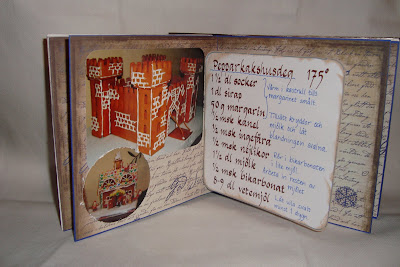 Pepparkakshusdeg 175°
1 ½ dl socker
1 dl sirap
50 g margarin
½ msk kanel
½ msk ingefära
½ msk nejlikor
1 ½ dl mjölk
½ msk bikarbonat
8-9 dl vetemjöl
Värm i kastrull tills
margarinet smält
Tillsätt kryddor och
mjölk och låt
blandningen svalna.
Rör i bikarbonaten
i lite mjöl.
Arbeta in resten av
mjölet
Låt vila svalt
minst 1 dygn